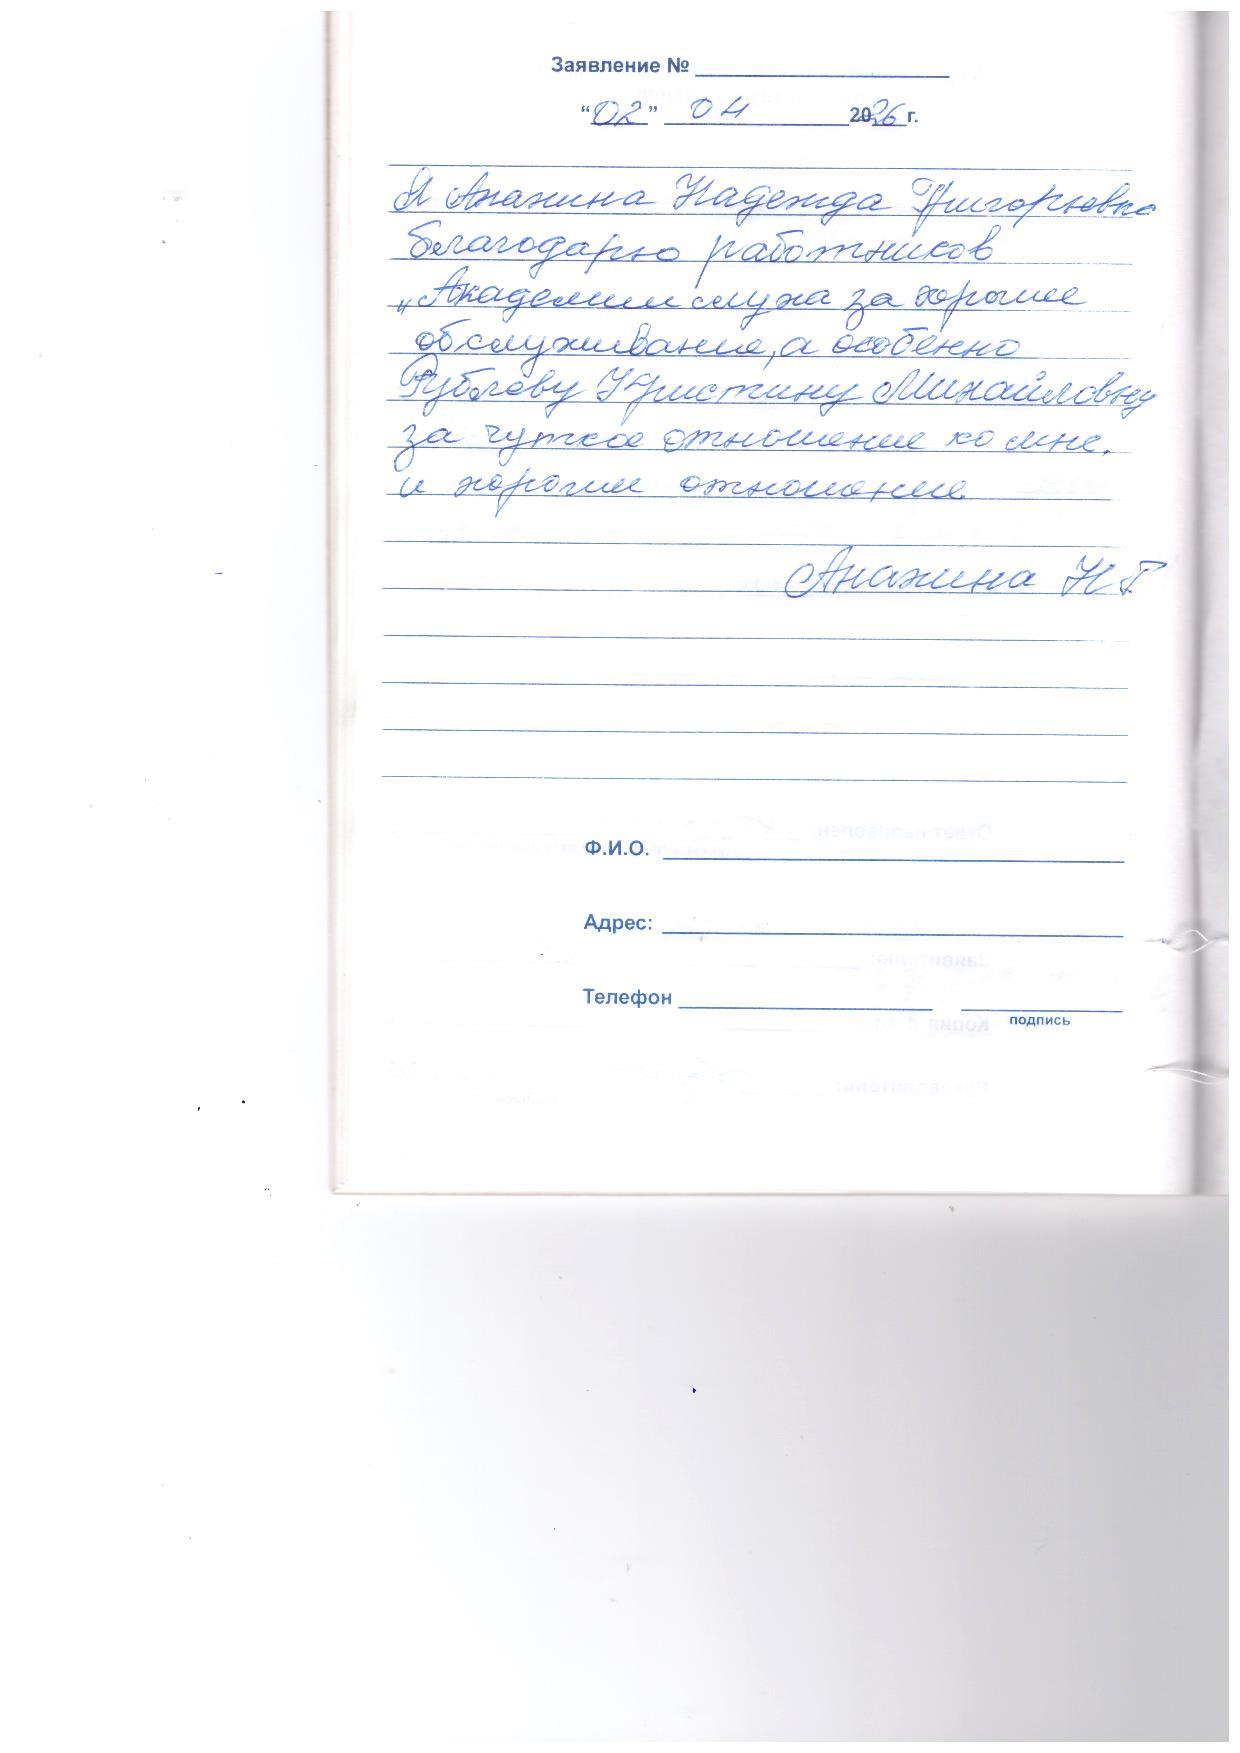 Заявление №
“02” 04 2026 г.
Я Ананина Надежда Григорьевна
благодарю работников
„Академии слуха за хорошее
обслуживание, а особенно
Рублеву Кристину Михайловну
за чуткое отношение ко мне.
и хорошее отношение.
Ананина Н.Г
Ф.И.О.
Адрес:
Телефон
подпись